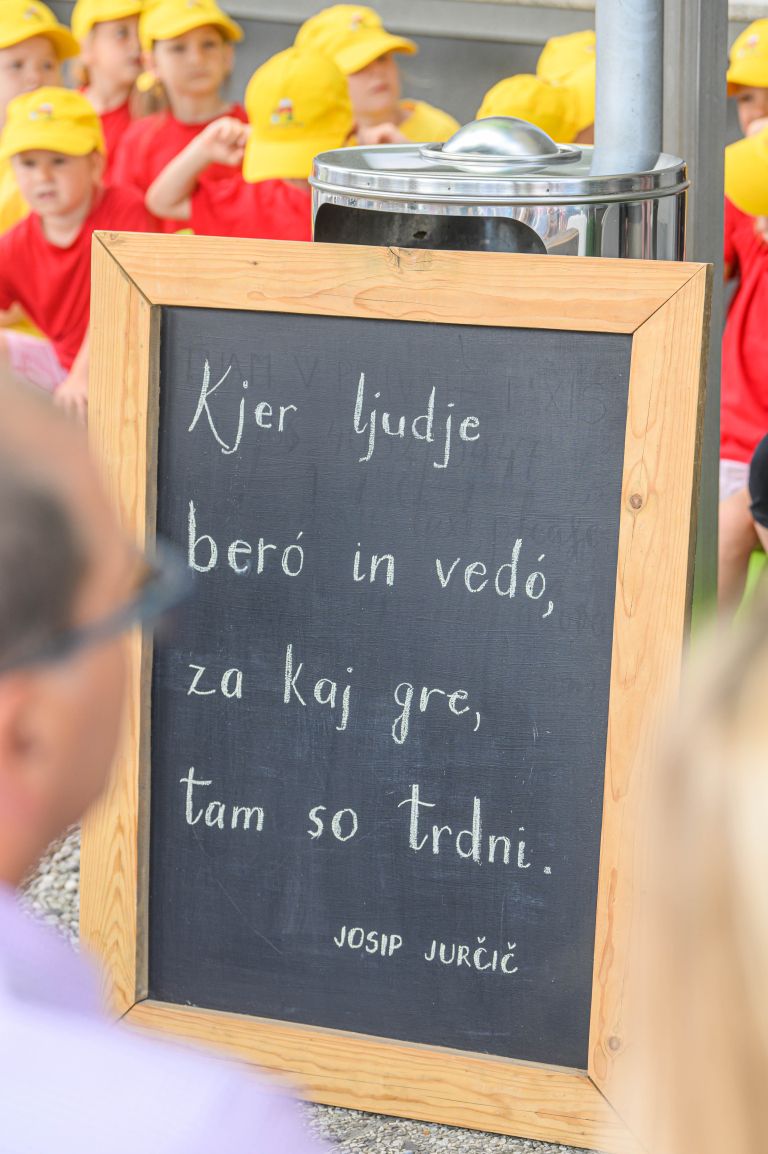 Kjer ljudje
beró in vedó,
za kaj gre,
tam so trdni.
JOSIP JURČIČ